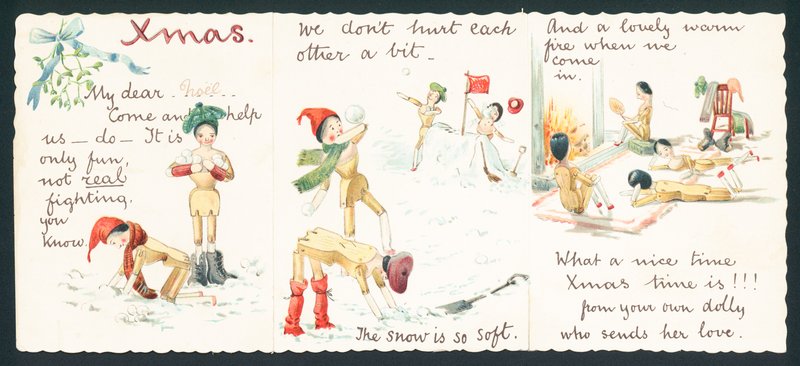 Xmas.
My dear Noël..
Come and help
us — do — It is
only fun,
not real
fighting.
you
know.
We don't hurt each
other a bit —
The snow is so soft.
And a lovely warm
fire when we
come
in.
What a nice time
Xmas time is!!!
from your own dolly
who sends her love.